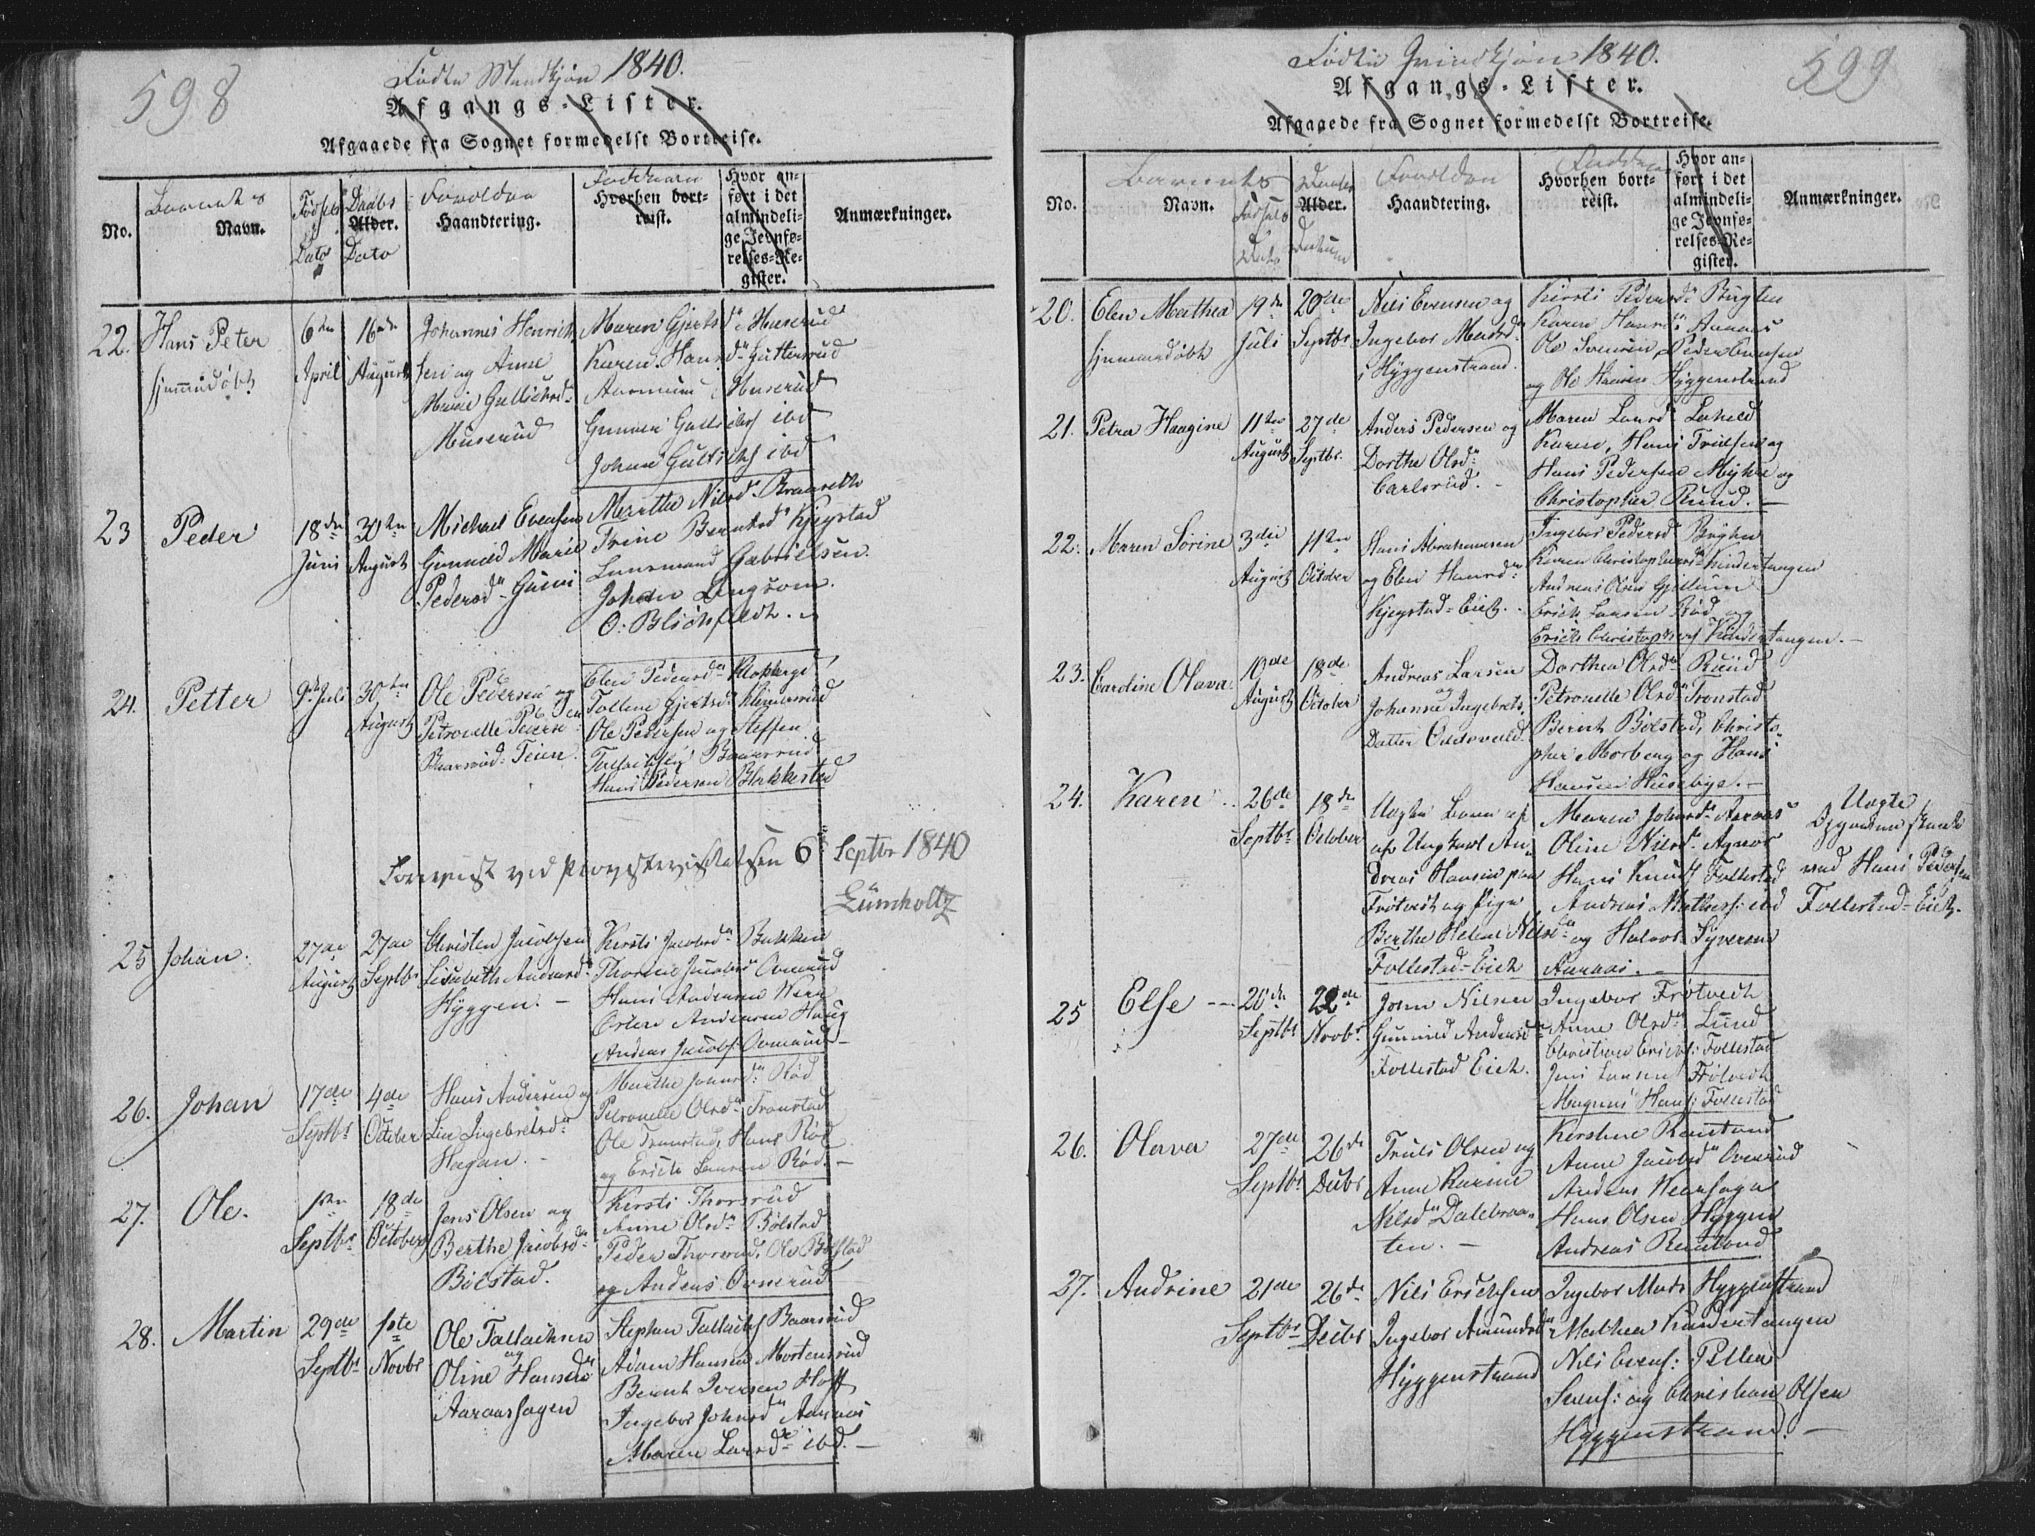 598
Födte Mandkjøn 1840.
Afgangs-Lister.
Afgaaede fra Sognet formedelst Bortreise.
No.
Barnets
Navn.
Födsels
Dato
Daabs
Alder.
Dato
Forældre
Haandtering.
Faddere
Hvorhen bortreist.
Hvor anført i det almindelige Jevnførelses-Register.
Anmærkninger.
22.
Hans Peter
hjemmedøbt
6te
April
16de
August
Johannes Henrich
sen og Anne
Marie Gullichsd
Muserud
Maren Gjertsd Huserud
Karen Hansd Guttersrud
Aasmund Huserud
Gunner Gullichs ibd
Johan Gullichs ibd
23
Peder
18de
Juni
30te
August
Michael Evensen
Gunnild Marie
Pedersd
Marthe Nilsd
Trine Berntsd Kjegstad
Lensmand Gabrielsen
Johan
O: Blichfeldt.
24.
Petter
9de Juli
30te
August
Ole Pedersen og
Petronelle Peders
Baarsrud Teien.
Elen Pedersd
Tollene Gjertsd
Ole Pedersen og Steffen
Baarsrud
Hans Pedersen Blakkestad
Foreviist ved Provstevisitatsen 6te Septbr 1840
Lumholtz
25
Johan.
27de
August
27de
Septbr
Christen Jacobsen
Lisabeth Andersd
Hyggen. -
Kirsti Jacobsd Bakken
Thorine Jacobs Ovnerud
Hans Andersen Werp
Andersen Haug
Anders Jacobs: Ovnerud -
26.
Johan
17de
Septbr
4de
October
Hans Andersen og
Lise Ingebretsd
Hagan. -
Marthe Johnsd Rød
Petronelle Olsd Tronstad
Ole Tronstad, Hans Rød
og Erich Larsen Rød. -
27.
Ole.
1ste
Septbr
18de
October
Jens Olsen og
Berthe Jacobsd
Bölstad.
Kirsti Thorsrud
Anne Olsd Bölstad
Peder Thorsrud, Ole Bölstad
og Anders Ovnerud
28.
Martin
29de
Septbr
1ste
Novbr
Ole Tallachsen
og
Oline Hansd
Aaraashagen
Stephen Tallachs Baarsrud
Adam Hansen Mortensrud
Bernt Iversen Hoff
Ingebor Johnsd Aaraas
Maren Larsd ibd. -
599
Födte Qvindekjøn 1840.
Afgangs-Lister.
Afgaaede fra Sognet formedelst Bortreise.
No.
Barnets
Navn.
Födsels
Dato
Daabs
Alder.
Datum
Forældre
Haandtering.
Faddere
Hvorhen bortreist.
Hvor anført i det almindelige Jevnførelses-Register.
Anmærkninger.
20.
Elen Mathea
hjemmedøbt
19de
Juli
20de
Septbr
Nils Evensen og
Ingebor Madsd
i Hyggenstrand.
Kirsti Pedersd Bugten
Karen Hansd Aaraas
Ole Svensen, Peder Evensen
og Ole Hansen Hyggenstrand
21.
Petra Haagine
11te
August
27de
Septbr
Anders Pedersen og
Dorthe Olsd
Carlsrud. -
Maren Larsd Laheld
Karen, Hans Tvedsen og
Hans Pedersen Myhre og
Christopher Ruud. -
22.
Maren Sörine
3die
August
11te
October
Hans Abrahamsen
og Elen Hansd
Kjegstad-Eiet. -
Ingebor Pedersd Bugten
Karen Christophersd Kindertangen
Andreas Olsen Gjellum
Erich Larsen Rød og
Erich Christophers Kindertangen. -
23.
Caroline Olava
10de
August
18de
October
Andreas Larsen
og
Johanne Ingebrets
Datter Oddevald.
Dorthea Olsd Ruud
Petronelle Olsd Tronstad
Bernt Bölstad, Christo-
pher Morberg og Hans
Hansen Husebye. -
24.
Karen
26de
Septbr
18de
October
Uægte Barn af
af Ungkarl An-
dreas Hansen paa
Frötvedt og Pige
Berthe Helene Nilsd
Follestad-Eiet
Maren Johnsd Aaraas
Oline Nilsd Agnor
Hans Knuds Follestad
Andreas Mathias: ibd
og Halvor Syversen
Aaraas. -
Uægte
Opgivne
ved Hans Pedersen
Follestad-Eiet.
25
Else
20de
Septbr
22de
Novbr
John Nilsen
Gunnild Andersd
Follestad Eiet.
Ingebor Frötvedt
Anne Olsd Lund
Christian Erichs: Follestad
Jens Larsen Frötvedt
Magnus Hans: Follestad
26.
Olava
27de
Septbr
26de
Decbr
Truls Olsen og
Anne Karine
Nilsd Dalebraa-
ten. -
Kirstine Ramstand
Anne Jacobsd Ovnerud
Anders Weenhagen
Hans Olsen Hyggen
Andreas
27.
Andrine
21de
Septbr
26de
Decbr
Nils Erichsen
Ingebor Amundsd
Hyggenstrand
Ingebor Mads Hyggenstrand
Mathea Kindertangen
Nils Evens: Petter
Svens: og Christian Olsen
Hyggenstrand. -